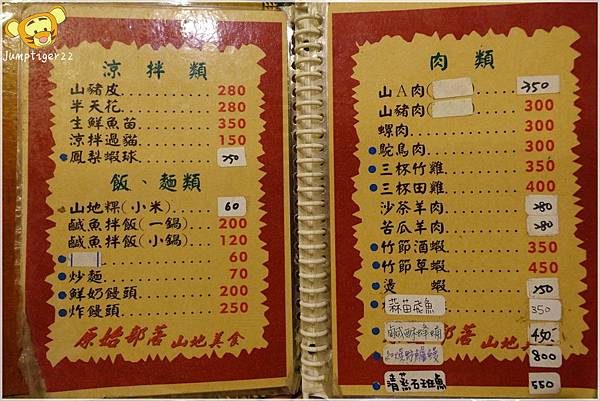 Jumptiger22
涼拌類
山豬皮 280
半天花 280
生鮮魚苗 350
涼拌過貓 150
鳳梨蝦球 250
飯、麵類
山地粿(小米) 60
鹹魚拌飯(一鍋) 200
鹹魚拌飯(小鍋) 120
60
炒麵 70
鮮奶饅頭 200
炸饅頭 250
原始部落 山地美食
肉類
山A肉( 350
山豬肉( 300
螺肉 300
鴕鳥肉 300
三杯竹雞 350
三杯田雞 400
沙茶羊肉 280
苦瓜羊肉 280
竹節酒蝦 350
竹節草蝦 450
燙蝦 250
蒜苗飛魚 350
鹹酥蜂蛹 450
部落 山地美
800
清蒸石班魚 550